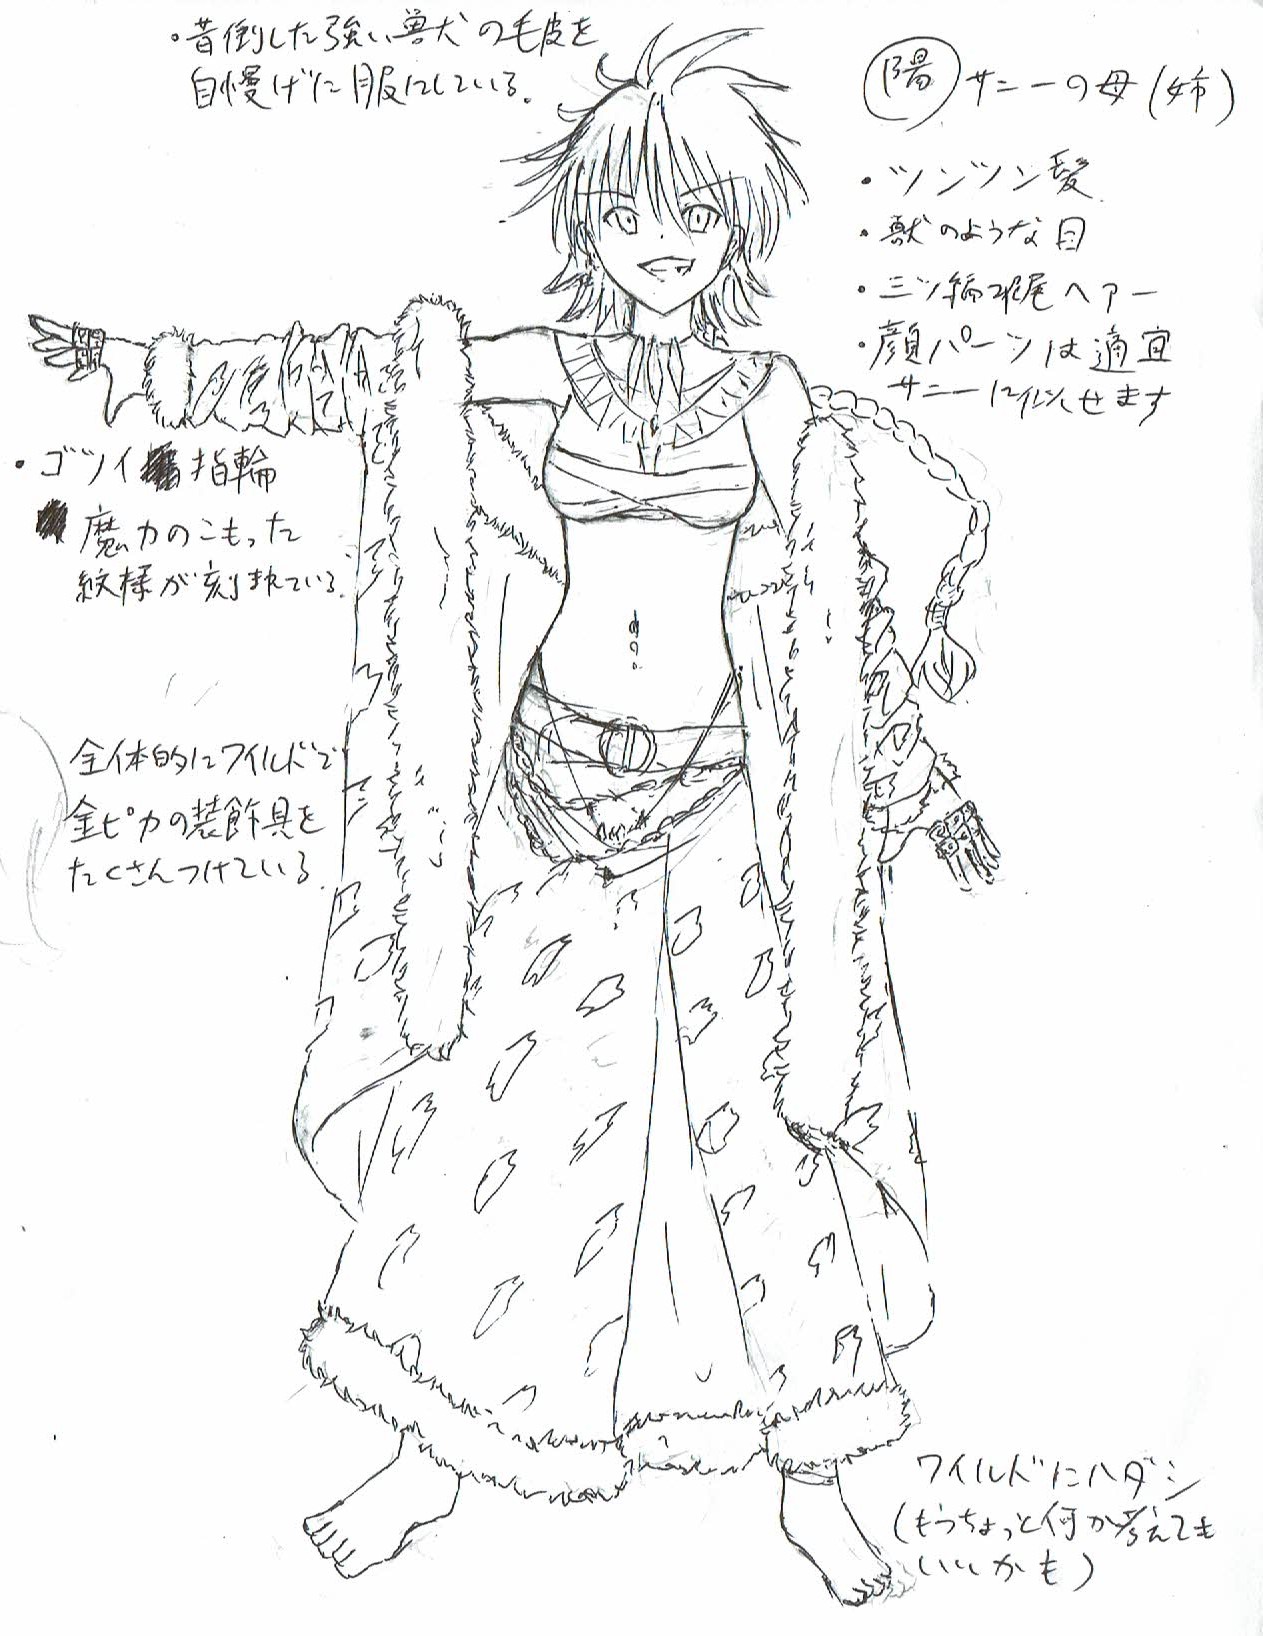 ・昔倒した強い獣犬の毛皮を
自慢げに服にしている。
陽 サニーの母(姉)
・ツンツン髪
・獣のような目
・三ツ編み尾ヘアー
・顔パーツは適宜
サニーに似せます
・ゴツイ指輪
魔力のこもった
紋様が刻まれている。
全体的にワイルドで
金ピカの装飾具を
たくさんつけている。
ワイルドにハダシ
(もうちょっと何か考えても
いいかも)